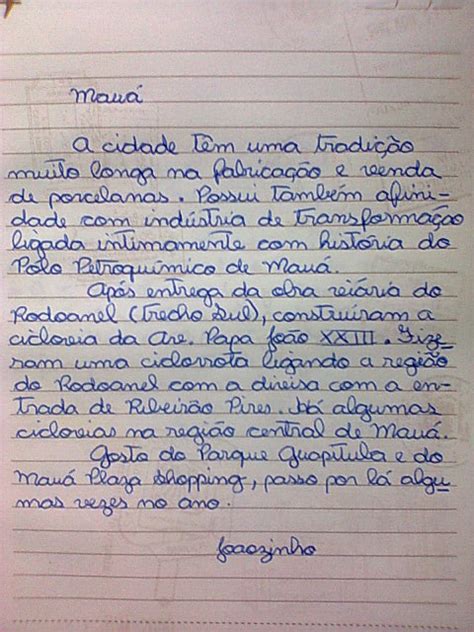 Mauá
A cidade têm uma tradição
muito longa na fabricação e venda
de porcelanas. Possui também afini-
dade com indústria de transformação
ligada intimamente com história do
Polo Petroquímico de Mauá.
Após entrega da obra viária do
Rodoanel (trecho Sul), construíram a
ciclovia da Ave. Papa João XXIII. Fize-
ram uma ciclorrota ligando a região
do Rodoanel com a divisa com a en-
trada de Ribeirão Pires. Há algumas
ciclovias na região central de Mauá.
Gosto do Parque Guapituba e do
Mauá Plaza Shopping, passo por lá algu-
mas vezes no ano.
Joaozinho